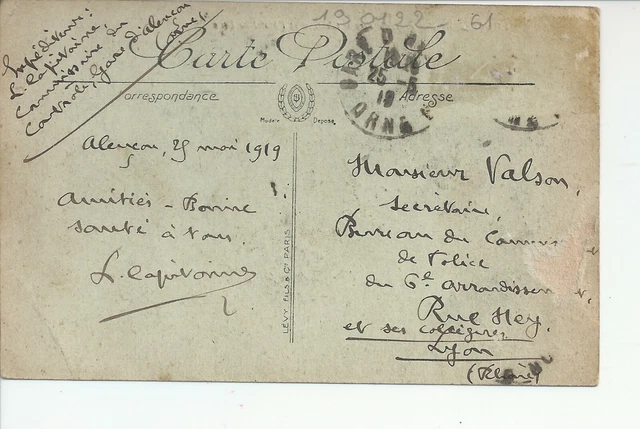 190122-61
Expéditeur:
L. Capitaine,
Commissaire du
Contrôle, Gare d'Alençon
(Orne).
Carte Postale
Correspondance
Adresse
Modèle Déposé
GARE D
25 -5
19
ORNE
Alençon, 25 mai 1919
Amitiés - Bonne
santé à tous.
L. Capitaine
LÉVY FILS & Cie PARIS
Monsieur Valson,
Secrétaire,
Bureau du Commis
de Police
du 6e arrondissem
Rue Ney.
et ses collègues,
Lyon
(Rhône)